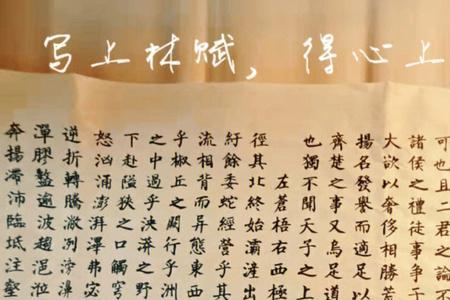 写上林赋，得心上
可也且二君之論不
諸侯之禮徒事争于
大欲以奢侈相勝荒
揚名發譽而適足以
齊楚之事又烏足道
也獨不聞天子之上
左蒼梧右西極
徑其北終始灞滻出
紆餘委蛇經營乎其
流相背而异態東西
乎椒丘之闕行乎洲
之中過乎泱漭之野
下赴隘狹之口觸穹
怒洶涌澎湃滭弗宓
逆折轉騰潎洌滂濞
潬膠盭逾波趨浥涖
奔揚滯沛臨坻注壑